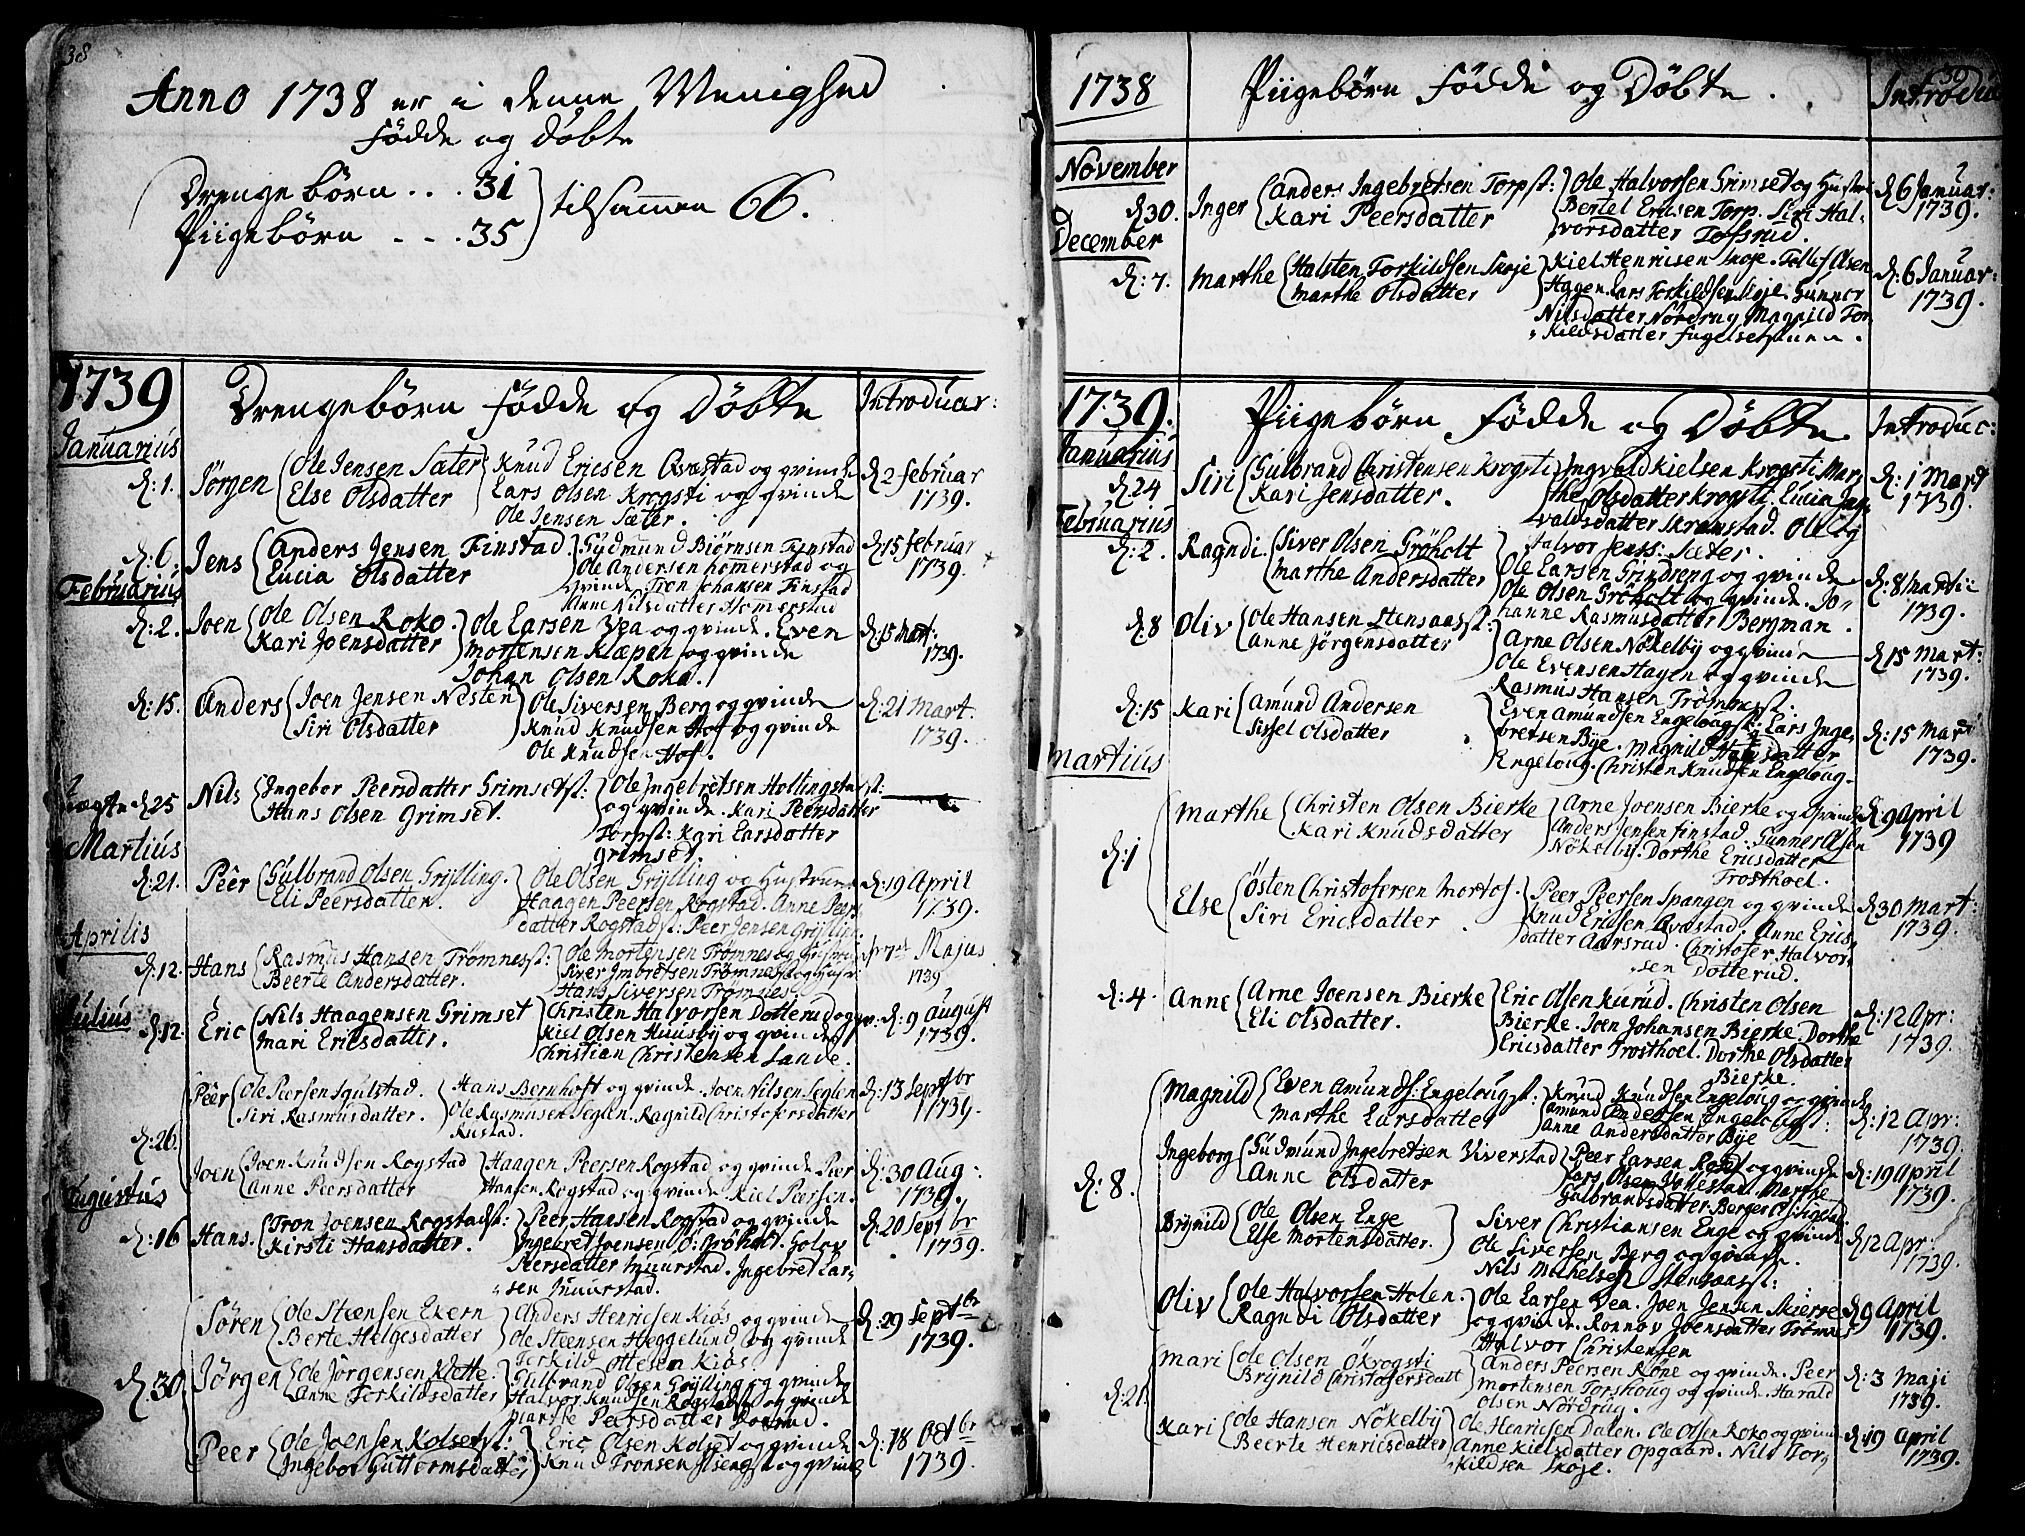 38
Anno 1738 er i denne Menighed
Fødde og døbte
Drengebørn . . . 31
Piigebørn . . . 35
tilsammen 66.
1739 Drengebørn Fødde og Døbte Introduar:
Januarius
d: 1. Jørgen Ole Jensen Sæter Knud Ericsen Qvæstad og qvinde d: 2 februar
Else Olsdatter Lars Olsen Krogsti og qvinde 1739.
Ole Jensen Sæter.
d: 6. Jens Anders Jensen Finstad Gudmund Biørnsen Finstad d: 15 februar
Lucia Olsdatter Ole Andersen homerstad og 1739.
qvinde. Tron Johansen Finstad
Anne Nilsdatter Hommerstad
Februarius
d: 2. Joen Ole Olsen Roko. Ole Larsen Vea og qvinde. Even d: 15 Mart:
Kari Joensdatter Mortensen Klæpen og qvinde 1739.
Johan Olsen Roko.
d: 15. Anders Joen Jensen Nesten Ole Siversen Berg og qvinde d: 21 Mart.
Siri Olsdatter Knud Knudsen Hof og qvinde 1739.
Ole Knudsen Hof.
d: 25 Nils Ingebor Peersdatter Grimsetst: Ole Ingebretsen
Hans Olsen Grimset. og qvinde. Kari Peersdatter
Torpst: Kari Larsdatter
Grimset.
Martius
d: 21. Peer Gulbrand Olsen Grylling. Ole Olsen Grylling og Hustrue d: 19 April
Eli Peersdatter. Haagen Peersen Rogstad. Anne Peers 1739.
datter Rogstadst: Peer Jensen Grylling.
Aprilis
d: 12. Hans Rasmus Hansen Trømnesst: Ole Mortensen Trømnes og Majus
Beerte Andersdatter. Siver Imbretsen Trømnes 1739
Hans Siversen Trømnes.
Julius
d: 12 Eric Nils Haagensen Grimset Christen Halvorsen Dotterud og qv: d: 9 august
Mari Ericsdatter. Kiel Olsen Huusby og qvinde 1739.
Christian Christensen Lande.
d: 26. Peer Ole Peersen Hans Bernhoft og qvinde. Joen Nilsen Seglen d: 13 Septbr
Siri Rasmusdatter. Ole Rasmusen Seglen. Ragnild Christofersdatter 1739.
Rustad.
Joen Joen Knudsen Rogstad Haagen Peersen Rogstad og qvinde Peer d: 30 Aug:
Anne Peersdatter Hansen Rogstad og qvinde Kiel Peersen. 1739.
Augustus
d: 16 Hans. Tron Joensen Rogstadst: Peer Hansen Rogstad og qvinde d: 20 Septbr
Kirsti Hansdatter. Ingebret Joensen Grøholt. Golov 1739.
Peersdatter Muurstad. Ingebret Lar-
sen Muurstad.
d: 30 Søren Ole Steensen Ekern Anders Henricsen Kiøs og qvinde d: 29 Septbr
Berte Helgesdatter Ole Steensen Heggelund og qvinde 1739.
Terkild Ottesen Kiøs.
Jørgen Ole Jørgensen Klette. Gulbrand Olsen Grylling og qvinde
Anne Terkildsdatter Halvor Knudsen Rogstad og qvinde
Marthe Peersdatter
Peer Ole Joensen Kolsetst: Eric Olsen Kolset og qvinde d: 18 Octbr
Ingebor Guttormsdatter Knud Tronsen og qvinde 1739.
39
1738 Piigebørn Fødde og Døbte. Introdu
November
d: 30. Inger Anders Ingebretsen Torpst: Ole Halvorsen Grimset og Hustru d: 6 Januar:
Kari Peersdatter Bertel Ericsen Torp. Siri Hal- 1739.
vorsdatter Tofsrud.
December
d: 7. Marthe Halsten Torkildsen Skoje Kiel Henricsen Skoje. Tollef Olsen d: 6 Januar:
Marthe Olsdatter Hagen. Lars Torkildsen Skoje. Gunner 1739.
Nilsdatter Nordrug Magnild Tor-
kildsdatter
1739. Piigebørn Fødde og Døbte Introduc:
Januarius
d: 24 Siri Gulbrand Christensen Krogsti Ingvald Kielsen Krogsti. Mar- d: 1 Mart
Kari Jensdatter. the Olsdatter Krogsti. Lucia Ing 1739.
valdsdatter Skramstad. Ole og
Halvor Jenss: Sæter.
Februarius
d: 2. Ragndi. Siver Olsen Grøholt Ole Larsen Grindreng og qvinde d: 8 Martii
Marthe Andersdatter Ole Olsen Grøholt og qvinde. Jo- 1739.
hanne Rasmusdatter Bergman.
d: 8 Oliv Ole Hansen Stensaasst: Arne Olsen Nökelby og qvinde d: 15 Mart:
Anne Jørgensdatter Ole Evensen Hagen og qvinde 1739.
Rasmus Hansen Trømnesst.
d: 15 Kari Amund Andersen Even Amundsen Engelougst: Lars Inge- d: 15 Mart
Sissel Olsdatter bretsen Bye. Magnild Hansdatter 1739.
Engeloug. Christen Knudsen Engeloug.
Martius
d: 1 Marthe Christen Olsen Bierke Arne Joensen Bierke og qvinde d: 9 April
Kari Knudsdatter Anders Jensen Finstad. Gunner Olsen 1739
Nökelby. Dorthe Ericsdatter
Trosthoel.
Else Østen Christofersen Mortof. Peer Peersen Spangen og qvinde d: 30 Mart:
Siri Ericsdatter. Knud Ericsen Qvæstad. Anne Erics- 1739.
datter Aarsrud. Christofer Halvor-
sen Dotterud.
d: 4. Anne Arne Joensen Bierke Eric Olsen Kurud. Christen Olsen d: 12 Apr:
Eli Olsdatter. Bierke. Joen Johansen Bierke. Dorthe 1739.
Ericsdatter Trosthoel. Dorthe Olsdatter
Bierke.
d: 8. Magnild Even Amunds: Engelougst: Knud Knudsen Engeloug og qvinde d: 12 Apr:
Marthe Larsdatter Amund Andersen Engelougst: 1739.
Anne Andersdatter Bye
Ingeborg Gudmund Ingebretsen Viverstad Peer Larsen og qvinde d: 19 April
Anne Olsdatter Lars Olsen Marthe 1739.
Gulbrandsdatter Berger
Brynild Ole Olsen Enge Siver Christiansen Enge og qvinde d: 12 Apr:
Else Mortensdatter. Ole Siversen Berg og qvinde. 1739.
Nils Michelsen Stensaasst:
Oliv Ole Halvorsen Holen. Ole Larsen Vea. Joen Jensen Skierre d: 9 April
Ragndi Olsdatter og qvinde. Ronnov Joensdatter Trømnes 1739.
Halvor Christensen
d: 21. Mari Ole Olsen Økrogsti Anders Peersen Røne og qvinde. Peer d: 3 Maji
Brynild Christofersdatt Mortensen Torshoug og qvinde. Harald 1739.
Olsen Nordrug.
Kari Ole Hansen Nökelby Ole Henricsen Dalen. Ole Olsen Roko og qvinde d: 19 April
Beerte Henricsdatter Anne Kielsdatter Opgaard. Nils Tor- 1739.
kildsen Skoje.